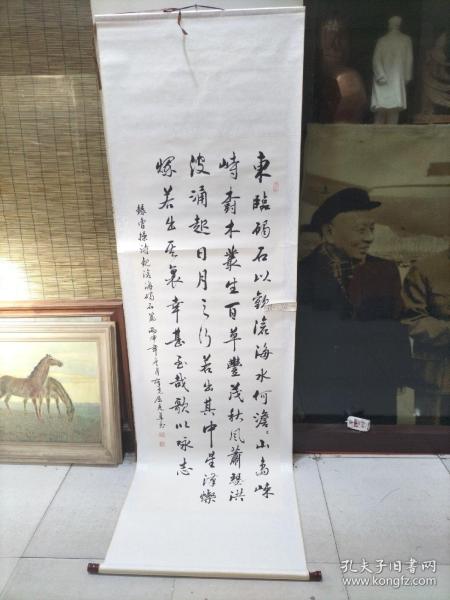 東臨碣石以觀滄海水何澹山島竦
峙樹木叢生百草豐茂秋風蕭瑟洪
波涌起日月之行若出其中星漢燦
爛若出其裏幸甚至哉歌以咏志
錄曹操诗觀滄海碣石篇 丙申年月書
孔夫子旧书网
www.kongfz.com